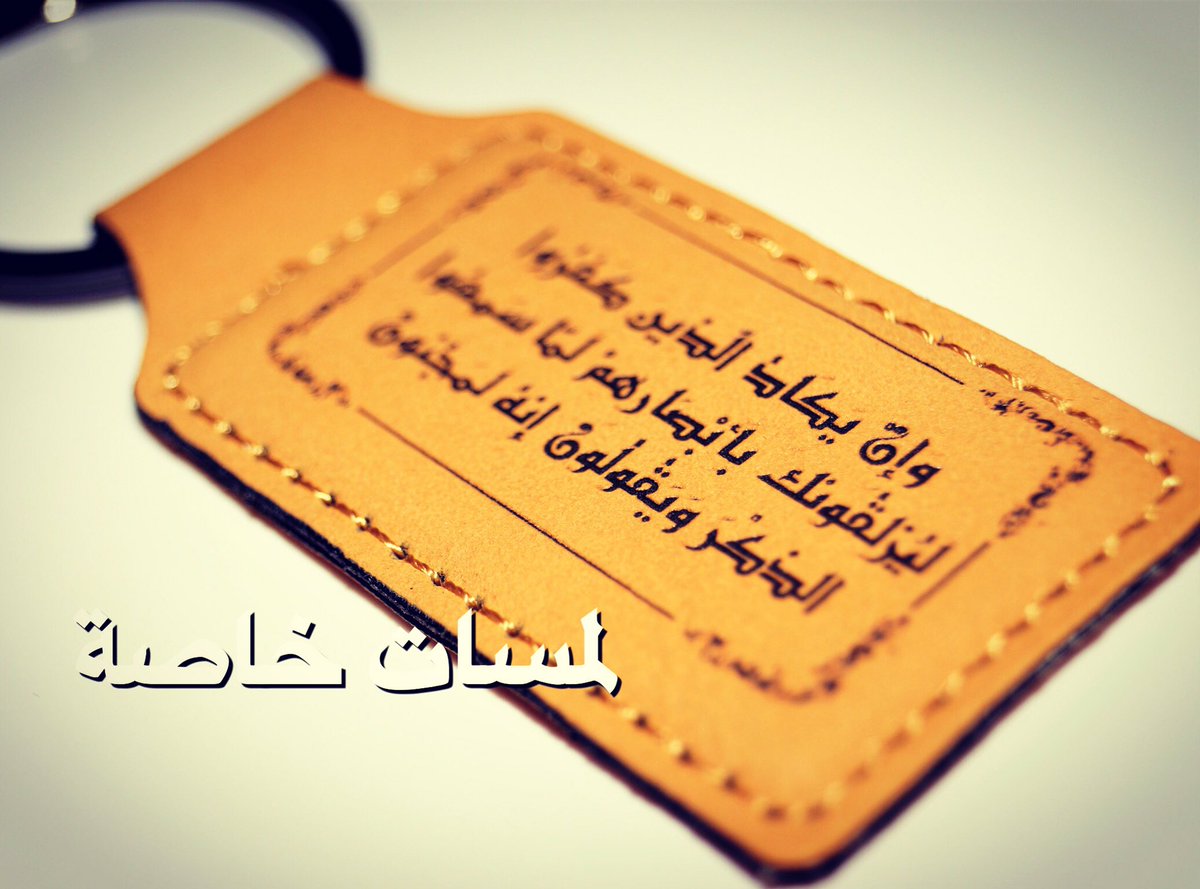 وإنّ يكادُ الّذين كفَرُوا
ليُزلقُونَك بأبْصارِهمْ لمّا سَمعُوا
الذكْرَ وَيقُولُونْ إنهُ لَمجْنونْ
لمسات خاصة